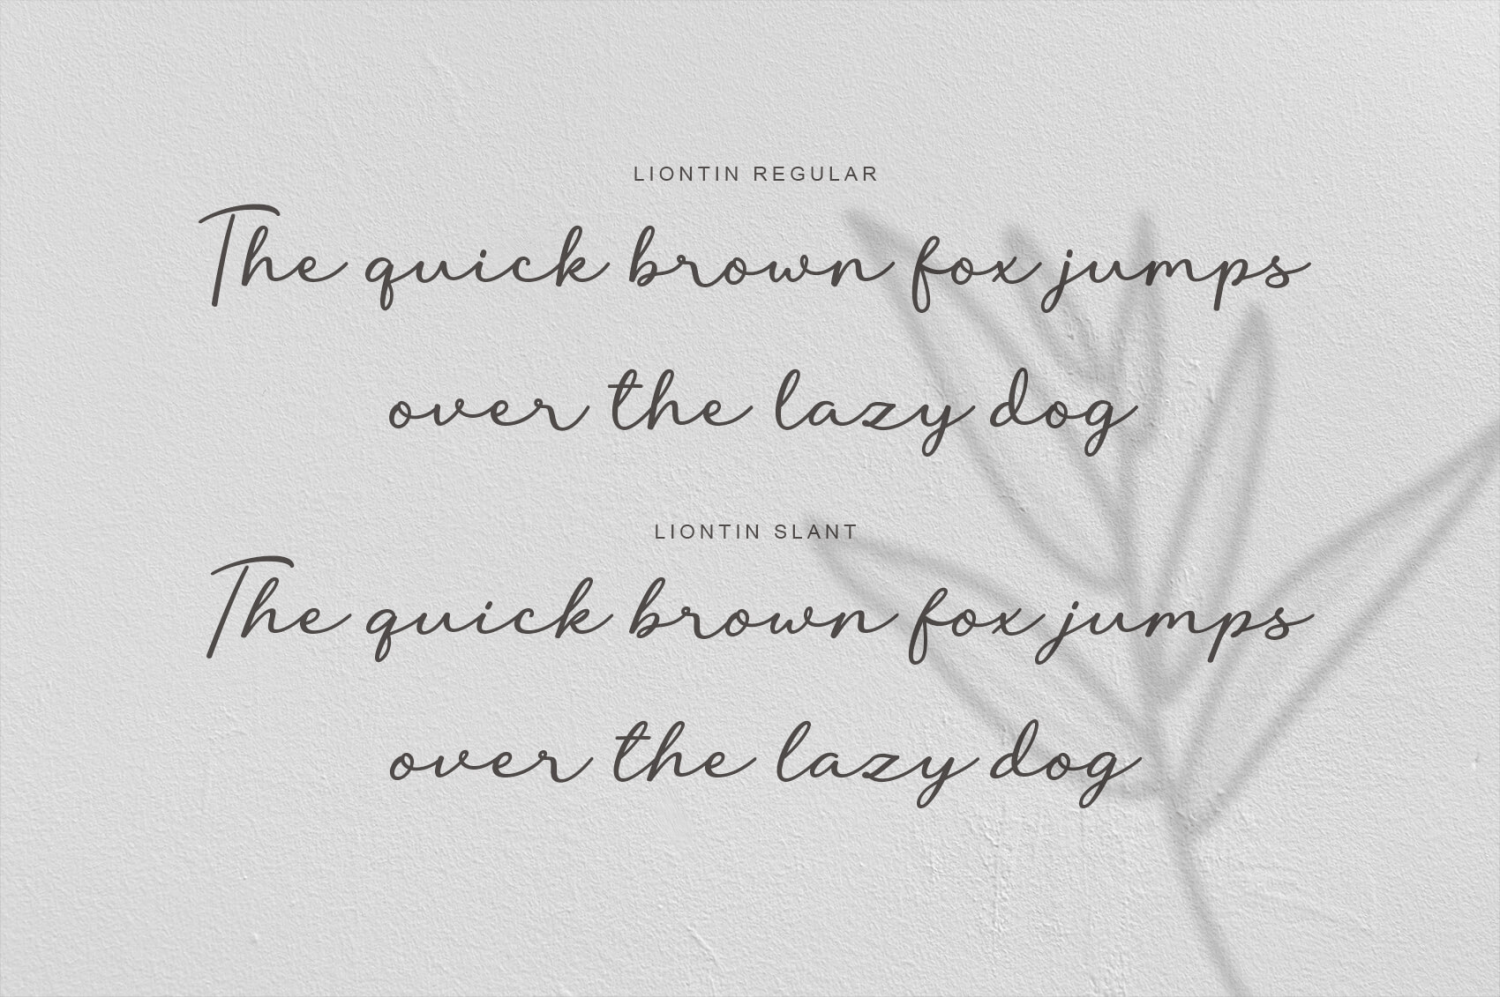 LIONTIN REGULAR
The quick brown fox jumps
over the lazy dog
LIONTIN SLANT
The quick brown fox jumps
over the lazy dog